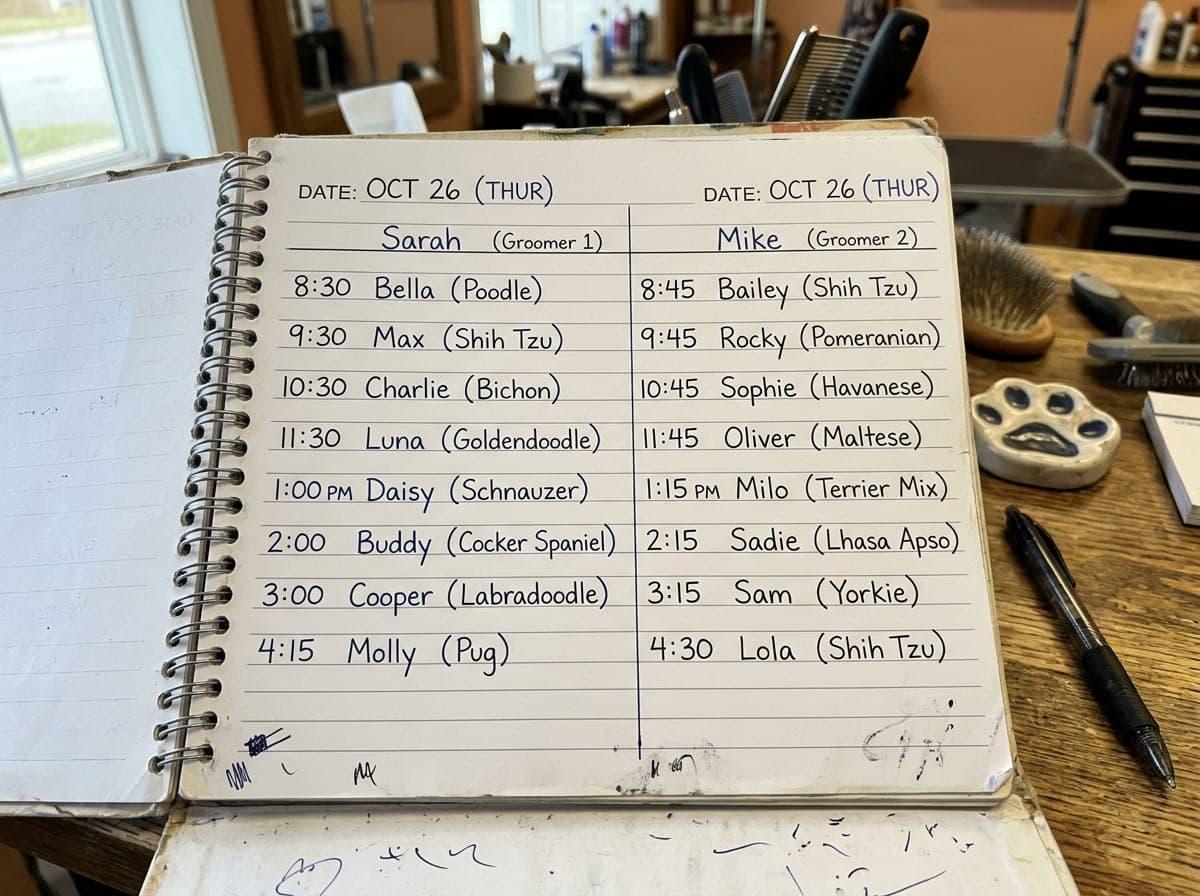 DATE: OCT 26 (THUR)
Sarah (Groomer 1)
8:30 Bella (Poodle)
9:30 Max (Shih Tzu)
10:30 Charlie (Bichon)
11:30 Luna (Goldendoodle)
1:00 PM Daisy (Schnauzer)
2:00 Buddy (Cocker Spaniel)
3:00 Cooper (Labradoodle)
4:15 Molly (Pug)
DATE: OCT 26 (THUR)
Mike (Groomer 2)
8:45 Bailey (Shih Tzu)
9:45 Rocky (Pomeranian)
10:45 Sophie (Havanese)
11:45 Oliver (Maltese)
1:15 PM Milo (Terrier Mix)
2:15 Sadie (Lhasa Apso)
3:15 Sam (Yorkie)
4:30 Lola (Shih Tzu)